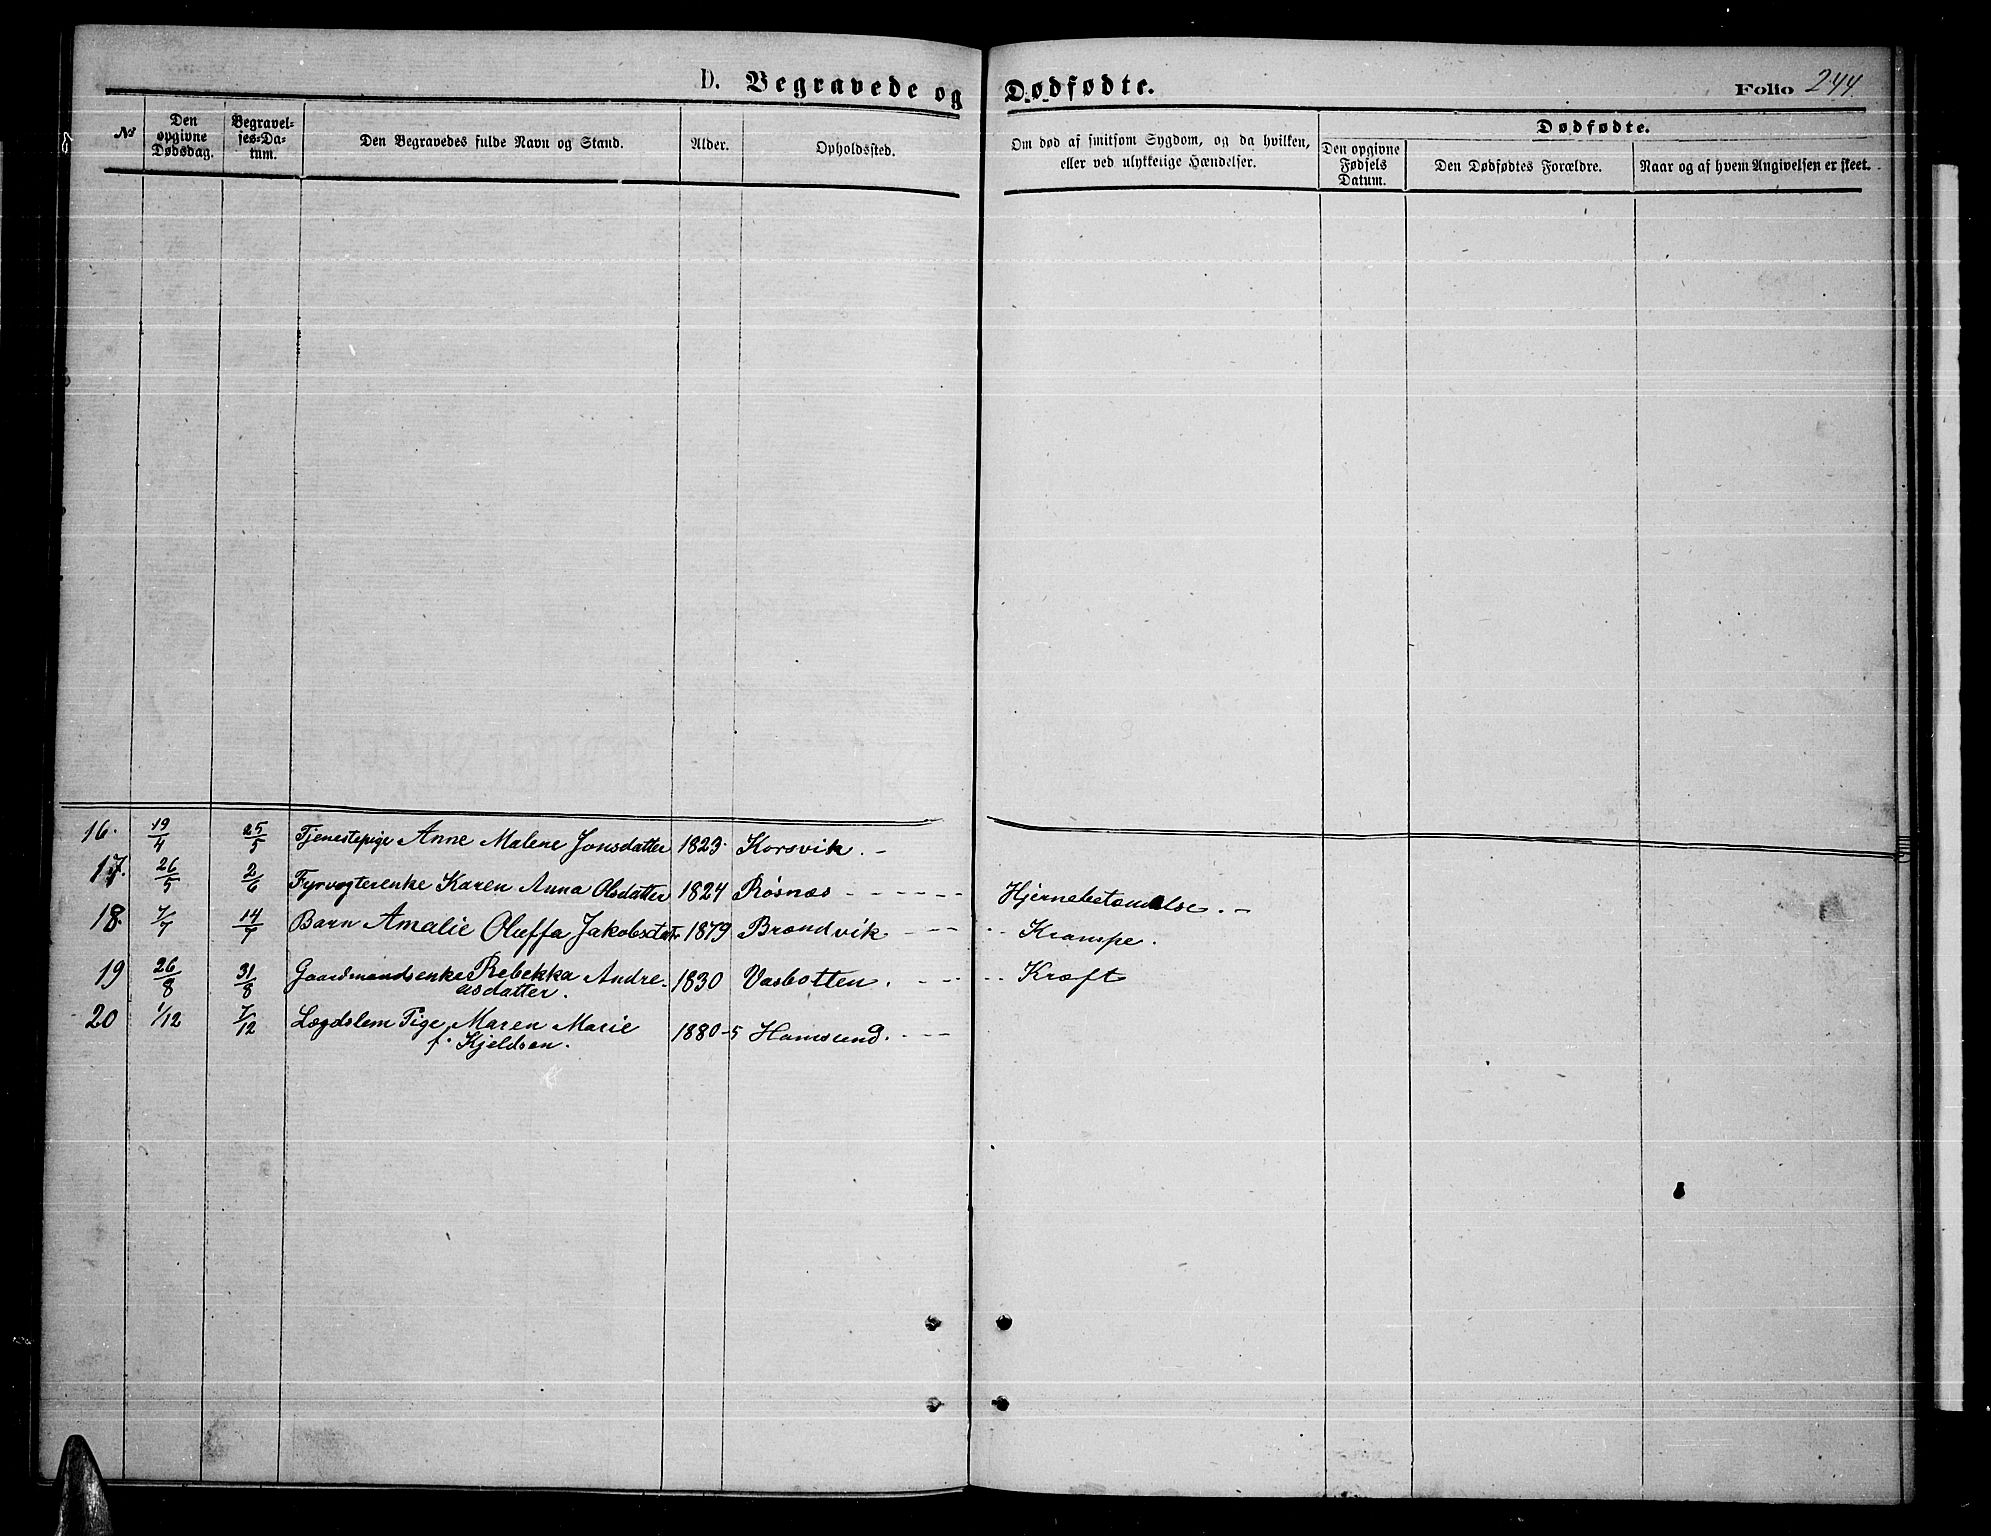 D. Begravede og Dødfødte.
Folio 244.
No
Den opgivne Dødsdag.
Begravelses-Datum.
Den Begravedes fulde Navn og Stand.
Alder.
Opholdssted.
Om død af smitsom Sygdom, og da hvilken,
eller ved ulykkelige Hændelser.
Dødfødte.
Den opgivne Fødsels Datum.
Den Dødfødtes Forældre.
Naar og af hvem Angivelsen er skeet.
16. 19/4 25/5 Tjenestepige Anne Malene Jonsdatter 1823 Korsvik. -
17. 26/5 2/6 Fyrvogterenke Karen Anna Olsdatter 1824 Røsnæs - - - - - - Hjernebetændelse. -
18. 7/7 14/7 Barn Amalie Oluffa Jakobsdatr 1879 Brandvik - - - - - Krampe.
19 26/8 31/8 Gaardmandsenke Rebekka Andre- 1830 Vasbotten. - - - - - Kræft
asdatter.
20 1/12 7/12 Lægdslem Pige Maren Marie 1880-5 Hamsund. - - -
f. Kjeldsen.